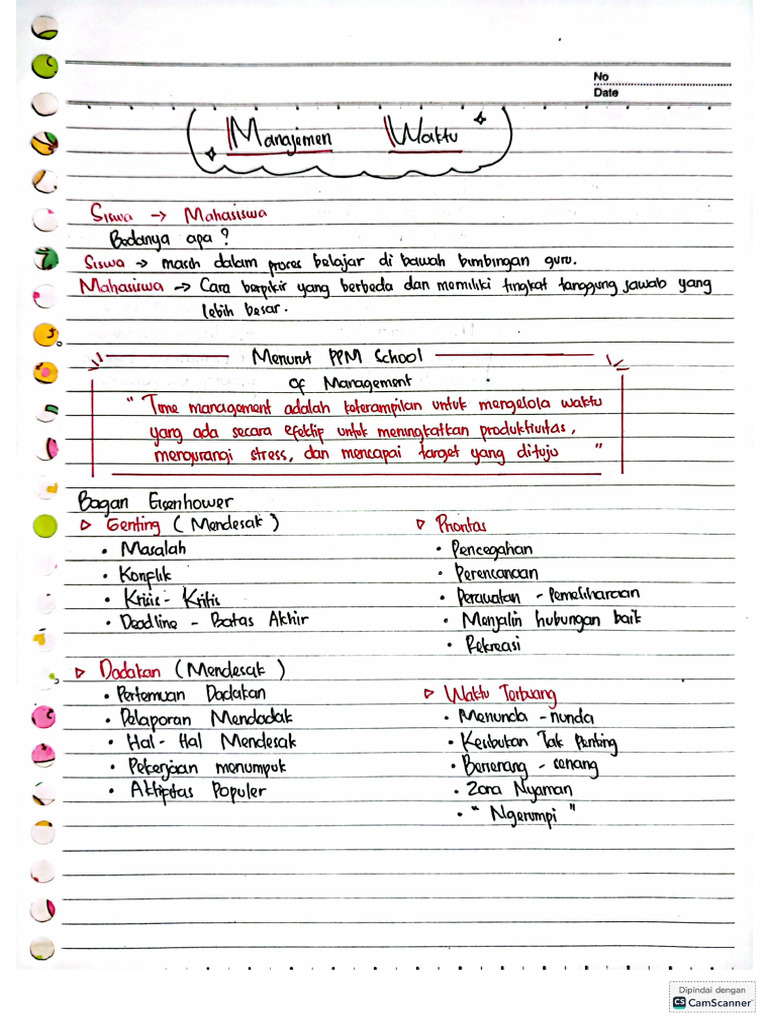 No
Date
Manajemen Waktu
Siswa → Mahasiswa
Bedanya apa?
Siswa → masih dalam proses belajar di bawah bimbingan guru.
Mahasiswa → Cara berpikir yang berbeda dan memiliki tingkat tanggung jawab yang
lebih besar.
Menurut PPM School
of Management
"Time management adalah keterampilan untuk mengelola waktu
yang ada secara efektif untuk meningkatkan produktivitas,
mengurangi stress, dan mencapai target yang dituju"
Bagan Eisenhower
▷ Genting (Mendesak)
• Masalah
• Konflik
• Krisis - Kritis
• Deadline - Batas Akhir
▷ Prioritas
• Pencegahan
• Perencanaan
• Perawatan - Pemeliharaan
• Menjalin hubungan baik
• Rekreasi
▷ Dadakan (Mendesak)
• Pertemuan Dadakan
• Pelaporan Mendadak
• Hal - Hal Mendesak
• Pekerjaan menumpuk
• Aktifitas Populer
▷ Waktu Terbuang
• Menunda - nunda
• Kesibukan Tak Penting
• Bersenang - senang
• Zona Nyaman
• "Ngerumpi"
Dipindai dengan
CS CamScanner